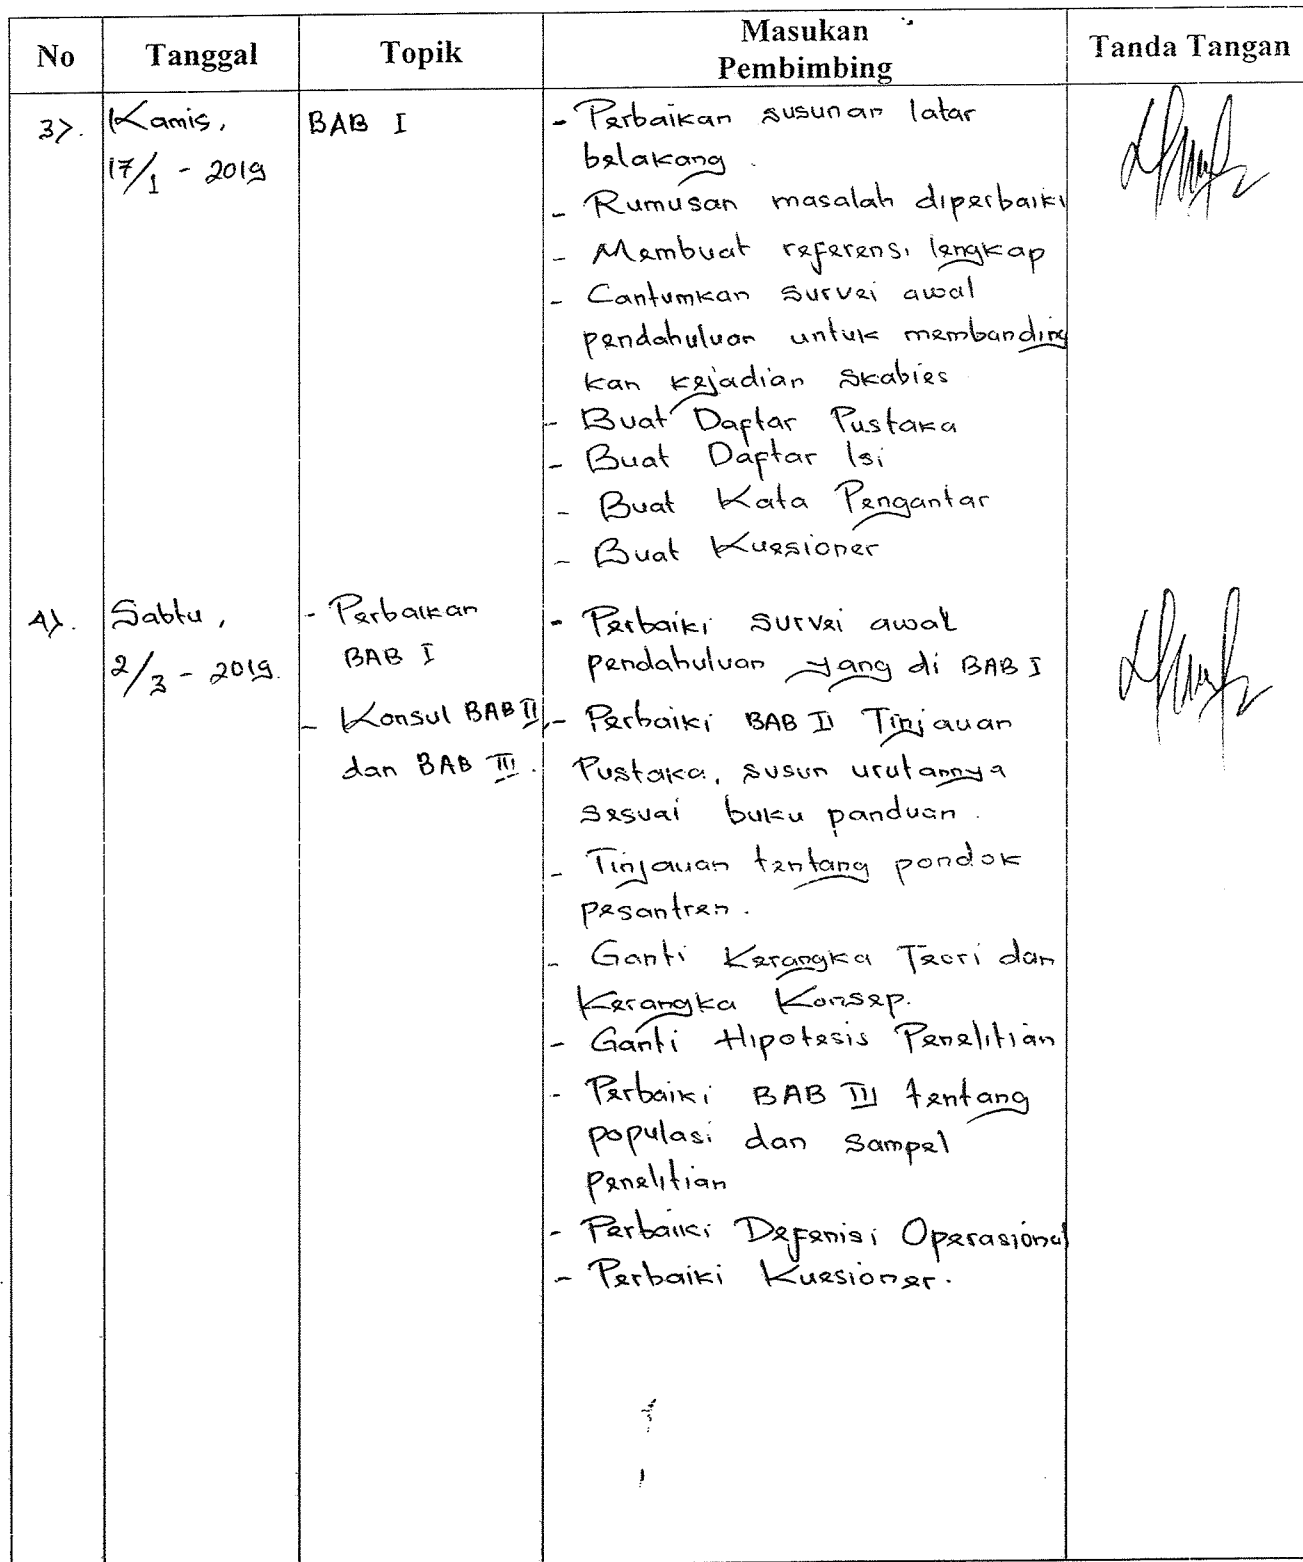 No Tanggal Topik Masukan Pembimbing Tanda Tangan
3). Kamis, 17/1 - 2019
BAB I
- Perbaikan susunan latar
belakang.
- Rumusan masalah diperbaiki
- Membuat referensi lengkap
- Cantumkan survei awal
pendahuluan untuk membanding
kan kejadian skabies
- Buat Daftar Pustaka
- Buat Daftar Isi
- Buat Kata Pengantar
- Buat Kuesioner
4). Sabtu, 2/3 - 2019.
- Perbaikan
BAB I
- Konsul BAB II
dan BAB III.
- Perbaiki survei awal
pendahuluan yang di BAB I
- Perbaiki BAB II Tinjauan
Pustaka, susun urutannya
sesuai buku panduan.
- Tinjauan tentang pondok
pesantren.
- Ganti Kerangka Teori dan
Kerangka Konsep.
- Ganti Hipotesis Penelitian
- Perbaiki BAB III tentang
populasi dan sampel
penelitian
- Perbaiki Defenisi Operasional
- Perbaiki Kuesioner.